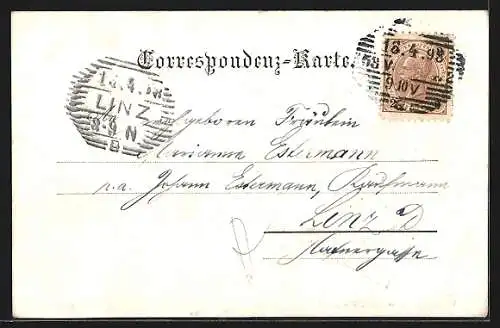 Correspondenz-Karte.
18.4.98
9-10V
18.4.98
LINZ
8-9 N
B
Hochgeboren Fräulein
Marianne Estermann
p.a. Johann Estermann, Kaufmann
Linz a/D
Hafnergasse